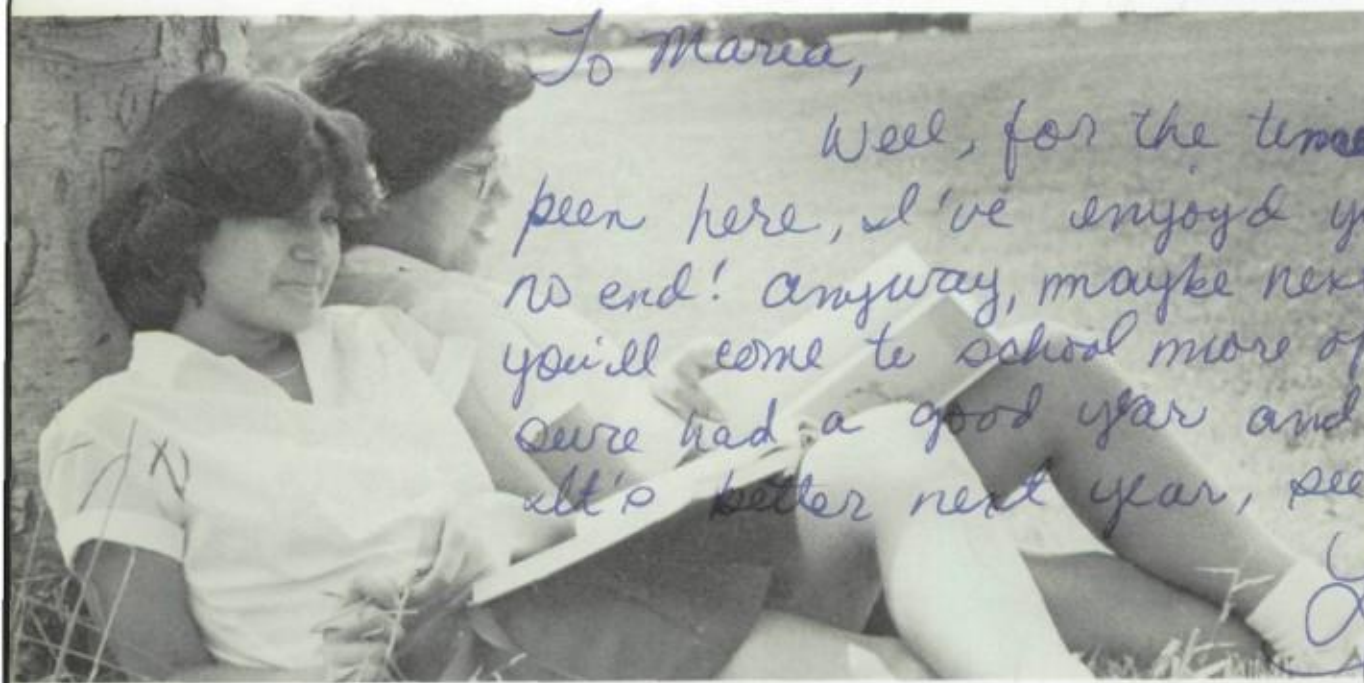 To Maria,
Well, for the time
been here, I've enjoyd y
no end! anyway, maybe nex
you'll come to school more of
sure had a good year and
It's better next year, see